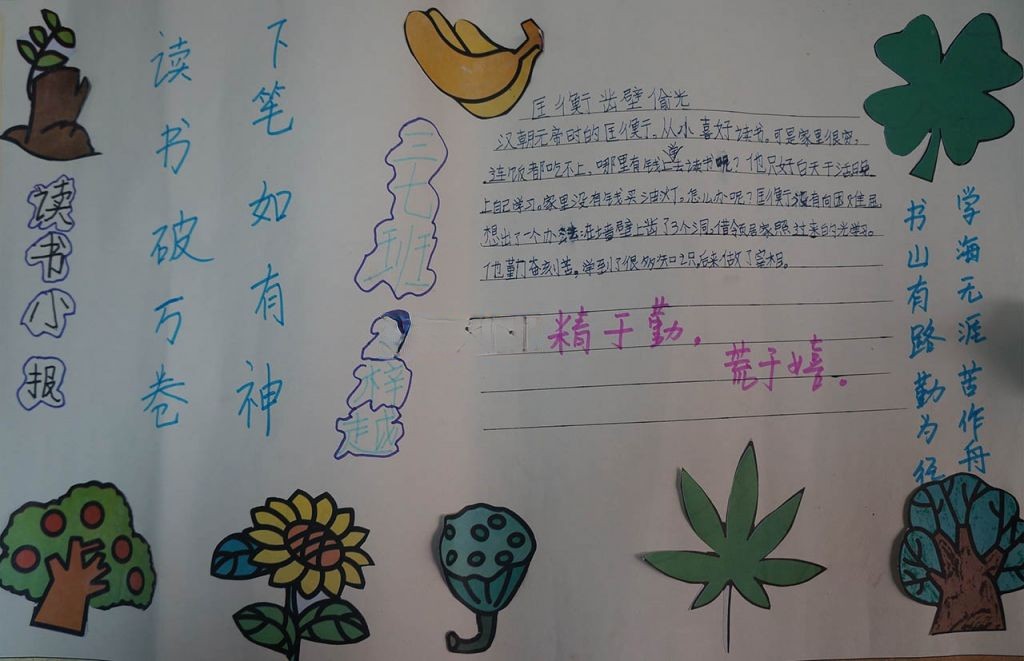 读书小报
读书破万卷
下笔如有神
三七班
梓越
匡衡凿壁偷光
汉朝元帝时的匡衡,从小喜好读书,可是家里很穷,
连饭都吃不上,哪里有钱上学去读书呢?他只好白天干活晚
上自己学习。家里没有钱买油灯,怎么办呢?匡衡没有向困难屈
想出了一个办法:在墙壁上凿了3个洞,借邻居家照过来的光学习。
他勤奋刻苦,学到了很多知识,后来做了宰相。
精于勤,
荒于嬉。
书山有路勤为径
学海无涯苦作舟